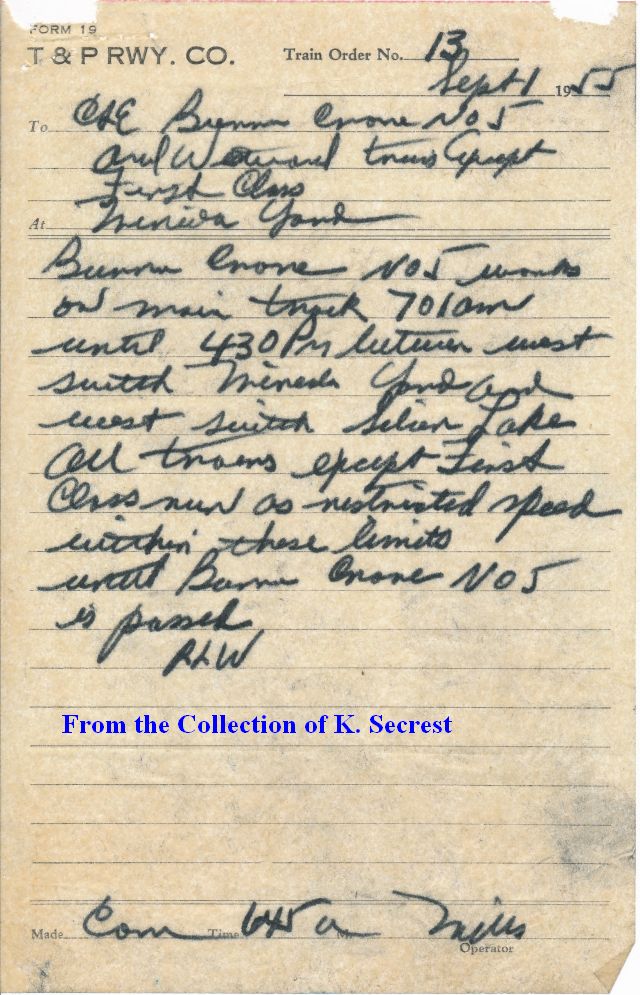 FORM 19
T & P RWY. CO.
Train Order No. 13
Sept 1 1955
To C&E Burro Crane No 5
and Westward trains except
First Class
At Mineola Yard
Burro Crane No 5 works
on main track 701am
until 430Pm between west
switch Mineola Yard and
west switch Silver Lake
All trains except First
Class run as restricted speed
within these limits
until Burro Crane No 5
is passed
RLW
From the Collection of K. Secrest
Made Com Time 645 a M. Mills
Operator